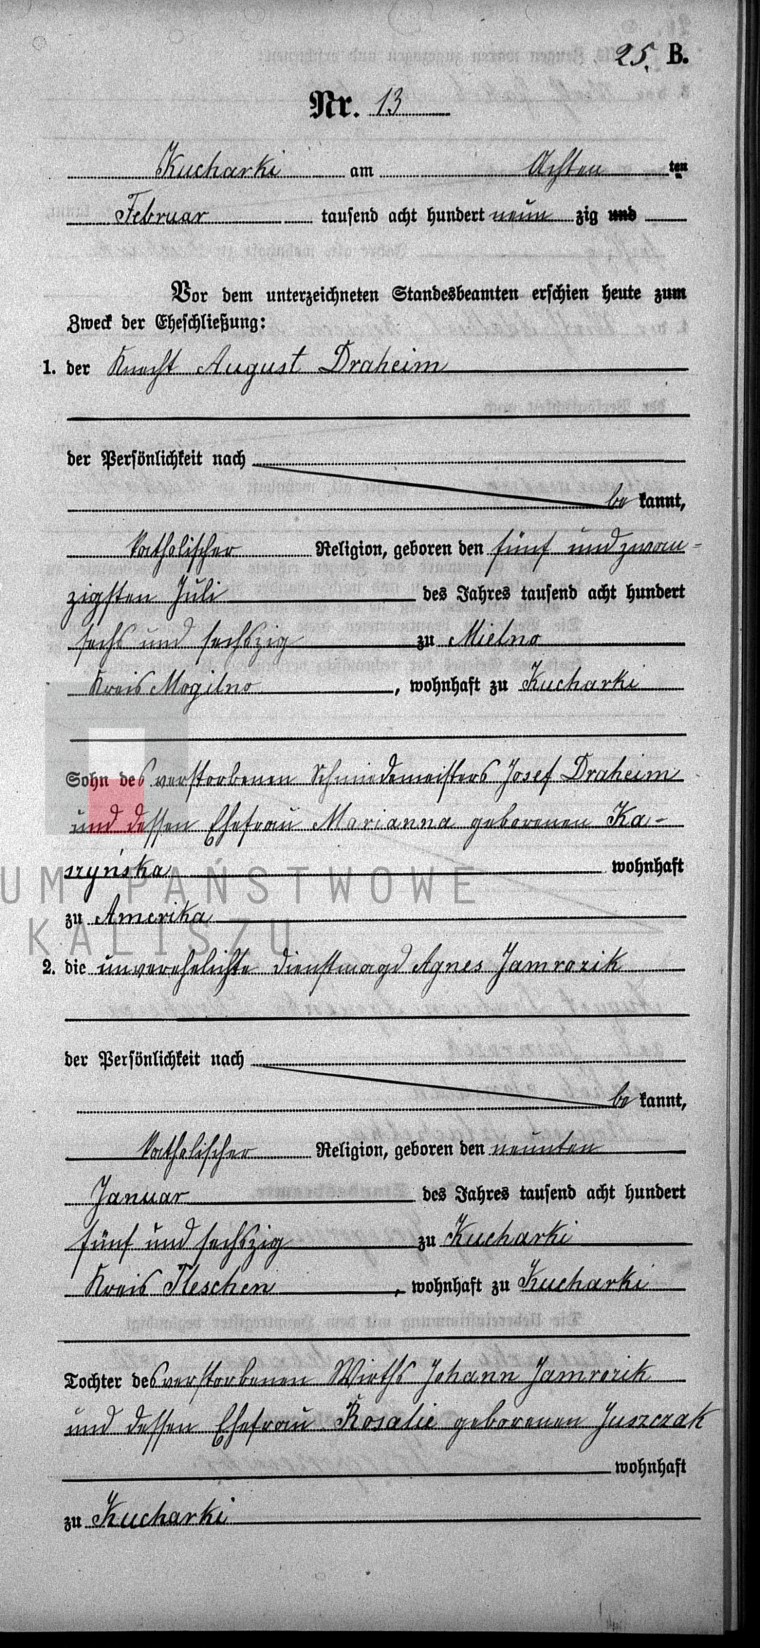 25. B.
Nr. 13
Kucharki am Achten ten
Februar tausend acht hundert neun zig und
Vor dem unterzeichneten Standesbeamten erschien heute zum
Zweck der Eheschließung:
1. der Knecht August Draheim
der Persönlichkeit nach
be kannt,
katholischer Religion, geboren den fünf und zwan-
zigsten Juli des Jahres tausend acht hundert
sechs und sechszig zu Mielno
Kreis Mogilno, wohnhaft zu Kucharki
Sohn des verstorbenen Schmiedemeisters Josef Draheim
und dessen Ehefrau Marianna geborenen Ka-
szyńska wohnhaft
UM PAŃSTWOWE
zu Amerika
KALISZU
2. die unverehelichte Dienstmagd Agnes Jamrozik
der Persönlichkeit nach
be kannt,
katholischer Religion, geboren den neunten
Januar des Jahres tausend acht hundert
fünf und sechszig zu Kucharki
Kreis Pleschen, wohnhaft zu Kucharki
Tochter des verstorbenen Wirths Johann Jamrozik
und dessen Ehefrau Rosalie geborenen Juszczak
wohnhaft
zu Kucharki